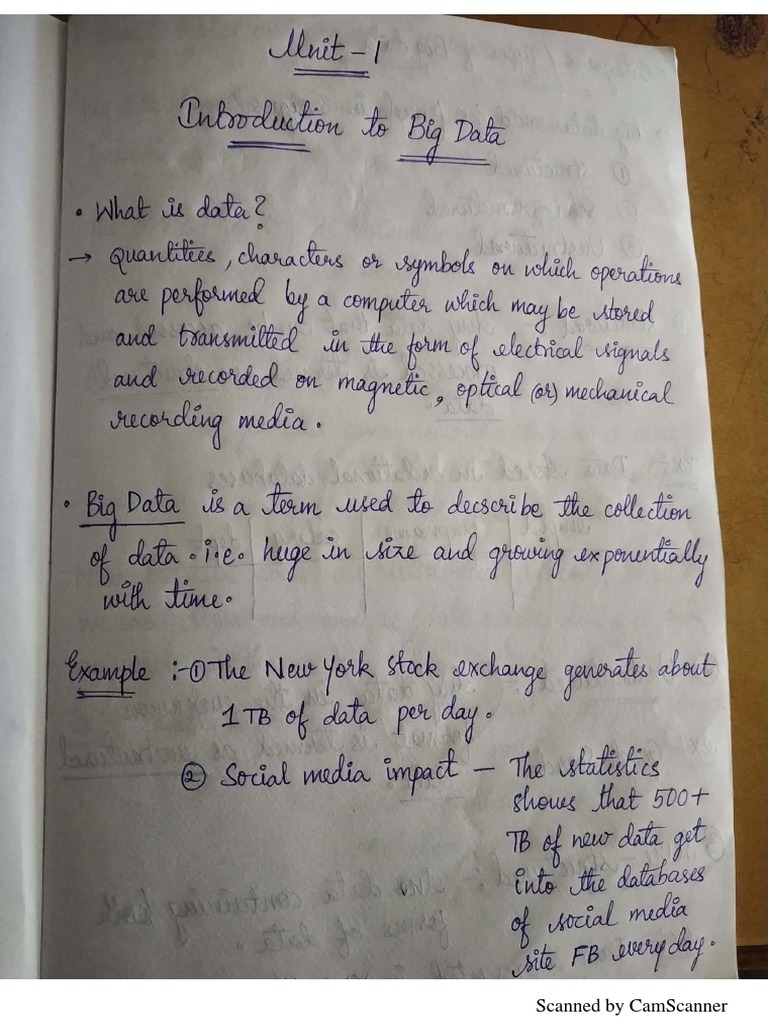 Unit - 1
Introduction to Big Data
• What is data?
→ Quantities, characters or symbols on which operations
are performed by a computer which may be stored
and transmitted in the form of electrical signals
and recorded on magnetic, optical (or) mechanical
recording media.
• Big Data is a term used to decscribe the collection
of data. i.e. huge in size and growing exponentially
with time.
Example :- ① The New York Stock exchange generates about
1 TB of data per day.
② Social media impact - The statistics
shows that 500+
TB of new data get
into the databases
of social media
site FB everyday.
Scanned by CamScanner